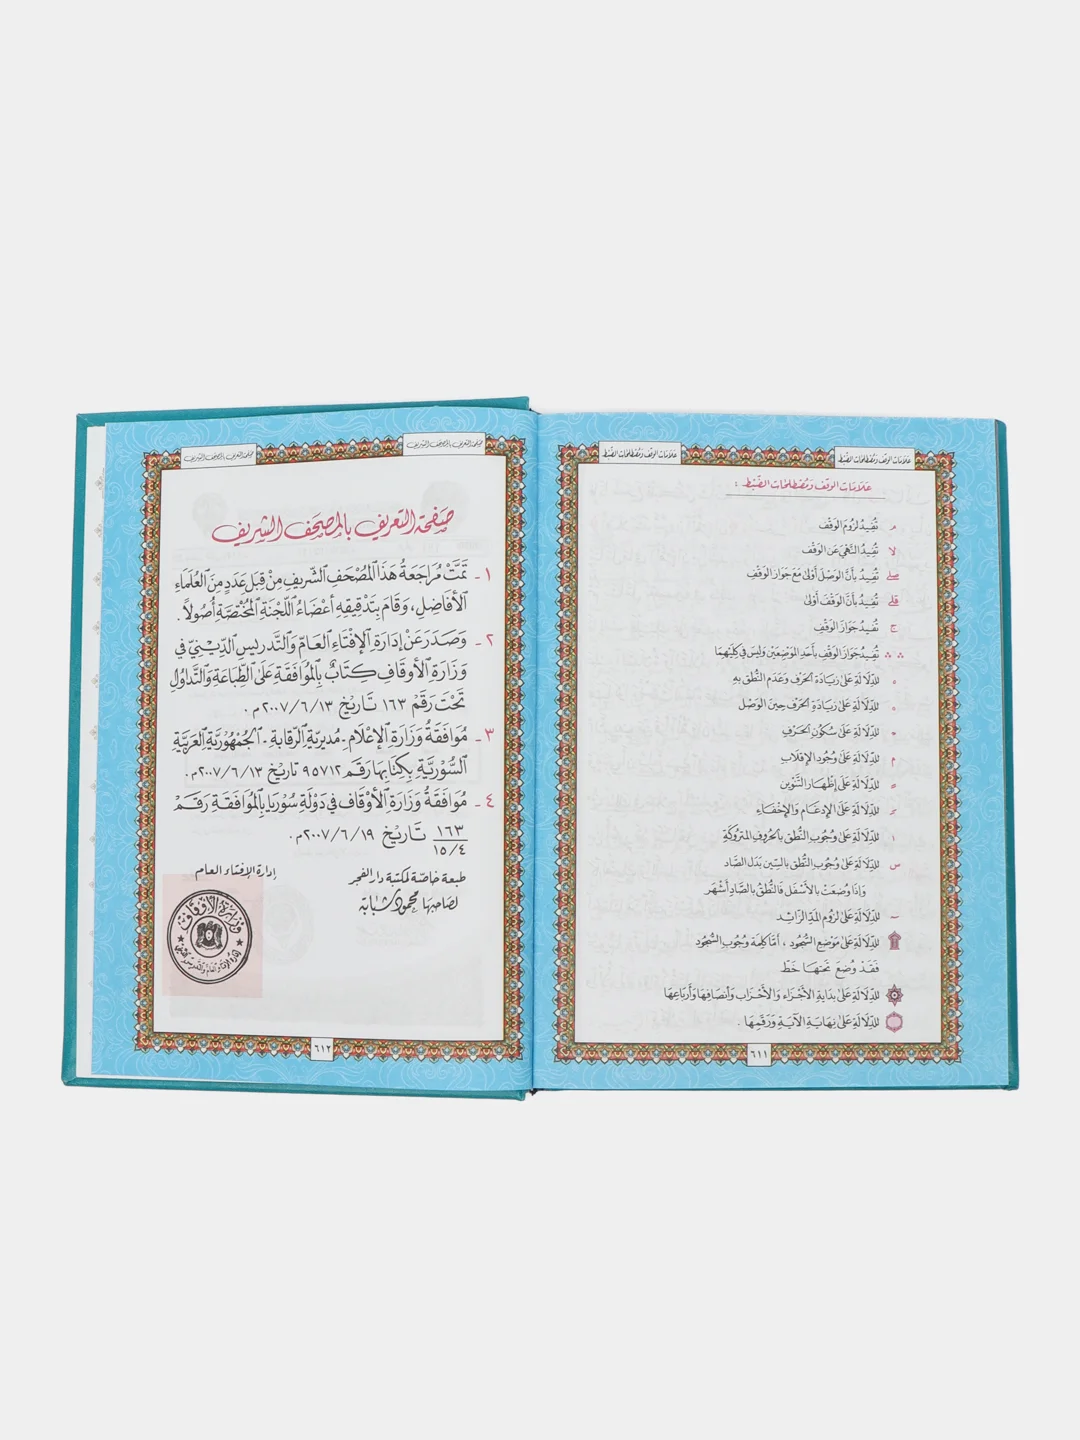 علامات الوقف ومصطلحات الضبط
علامات الوقف ومصطلحات الضبط
علامات الوقف ومصطلحات الضبط :
م تفيد لزوم الوقف
لا تفيد النهي عن الوقف
صلے تفيد بأن الوصل أولى مع جواز الوقف
قلے تفيد بأن الوقف أولى
ج تفيد جواز الوقف
تفيد جواز الوقف بأحد الموضعين وليس في كليهما
للدلالة على زيادة الحرف وعدم النطق به
للدلالة على زيادة الحرف حين الوصل
للدلالة على سكون الحرف
م للدلالة على وجود الإقلاب
للدلالة على إظهار التنوين
للدلالة على الإدغام والإخفاء
ا للدلالة على وجوب النطق بالحروف المتروكة
س للدلالة على وجوب النطق بالسين بدل الصاد
وإذا وضعت بالأسفل فالنطق بالصاد أشهر
للدلالة على لزوم المد الزائد
للدلالة على موضع السجود ، أما كلمة وجوب السجود
فقد وضع تحتها خط
للدلالة على بداية الأجزاء والأحزاب وأنصافها وأرباعها
للدلالة على نهاية الآية ورقمها .
٦١١
صفحة التعريف بالمصحف الشريف
صفحة التعريف بالمصحف الشريف
صفحة التعريف بالمصحف الشريف
١ - تمت مراجعة هذا المصحف الشريف من قبل عدد من العلماء
الأفاضل، وقام بتدقيقه أعضاء اللجنة المختصة أصولاً .
٢ - وصدر عن إدارة الإفتاء العام والتدريس الديني في
وزارة الأوقاف كتاب بالموافقة على الطباعة والتداول
تحت رقم ١٦٣ تاريخ ٢٠٠٧/٦/١٣م .
٣ - موافقة وزارة الإعلام - مديرية الرقابة - الجمهورية العربية
السورية بكتابها رقم ٩٥٧١٢ تاريخ ٢٠٠٧/٦/١٣م .
٤ - موافقة وزارة الأوقاف في دولة سوريا بالموافقة رقم
١٦٣ تاريخ ٢٠٠٧/٦/١٩م .
١٥/٤
طبعة خاصة لمكتبة دار الفجر
لصاحبها محمود شبابة
إدارة الإفتاء العام
وزارة الأوقاف
٦١٢